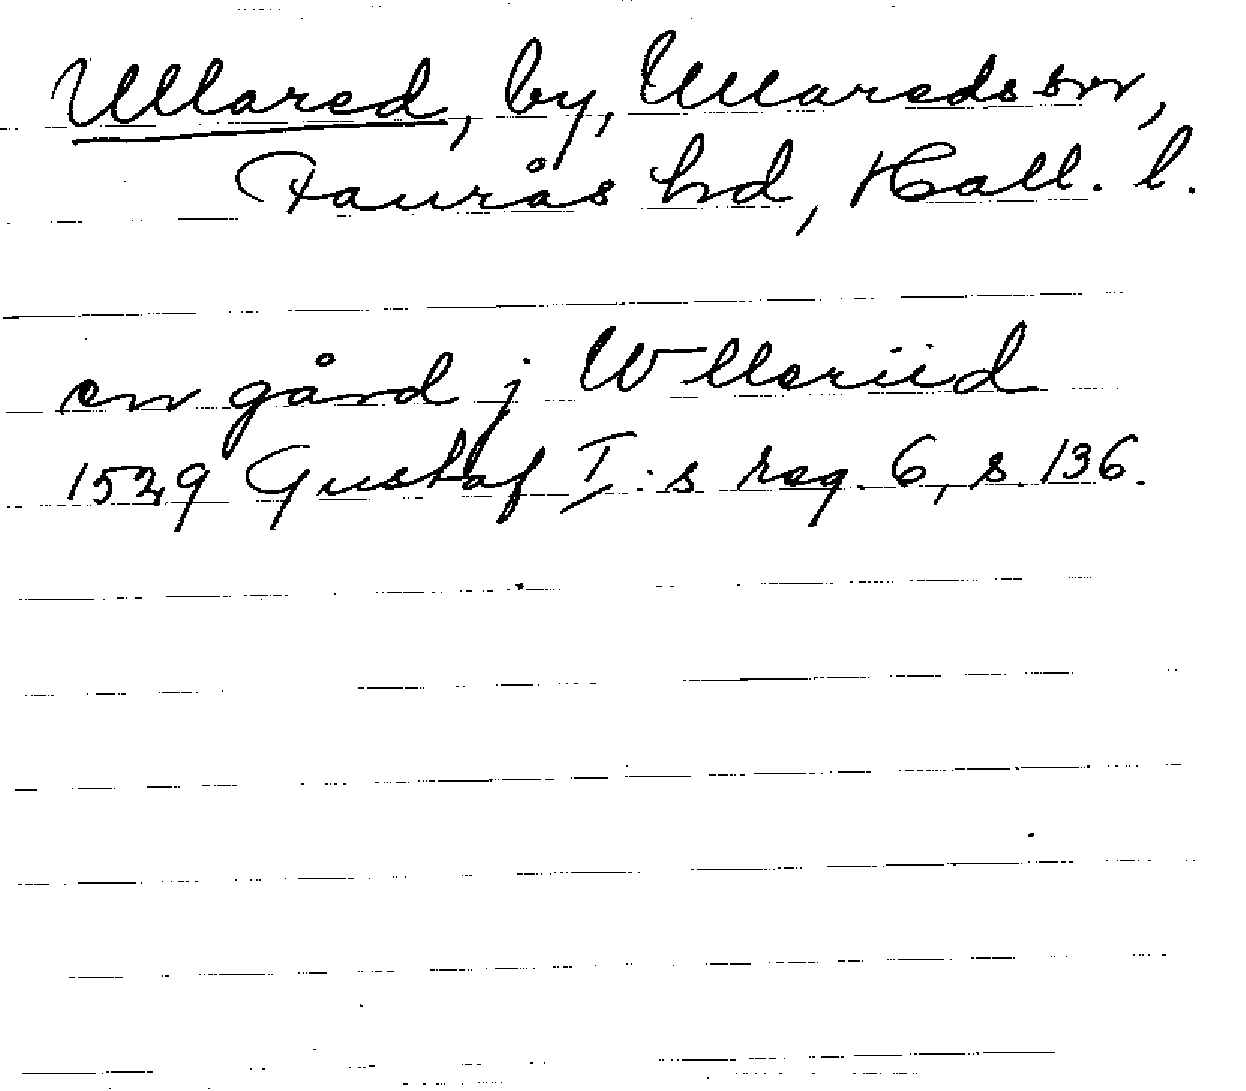 Ullared, by, Ullareds sn,
Faurås hd, Hall. l.
en gård j Wlleriid
1529 Gustaf I:s reg. 6, s. 136.